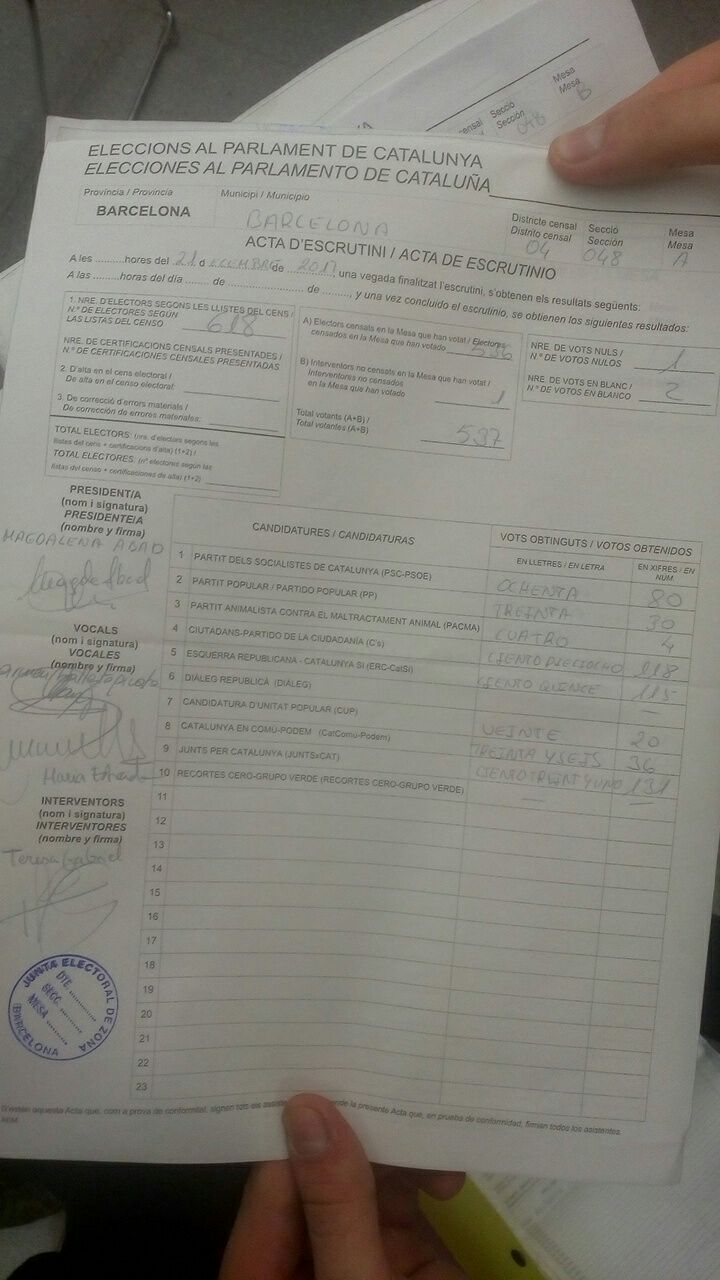 Mesa
Mesa
B
Secció
Sección
048
censal
censal
ELECCIONS AL PARLAMENT DE CATALUNYA
ELECCIONES AL PARLAMENTO DE CATALUÑA
Província / Provincia
BARCELONA
Municipi / Municipio
BARCELONA
Districte censal
Distrito censal
04
Secció
Sección
048
Mesa
Mesa
A
ACTA D'ESCRUTINI / ACTA DE ESCRUTINIO
A les .........hores del 21 d ECEMBRE de 2017, una vegada finalitzat l'escrutini, s'obtenen els resultats següents:
A las .........horas del día ....... de ........................ de ........, y una vez concluido el escrutinio, se obtienen los siguientes resultados:
1. NRE. D'ELECTORS SEGONS LES LLISTES DEL CENS /
N.º DE ELECTORES SEGÚN
LAS LISTAS DEL CENSO
618
NRE. DE CERTIFICACIONS CENSALS PRESENTADES /
N.º DE CERTIFICACIONES CENSALES PRESENTADAS
2. D'alta en el cens electoral /
De alta en el censo electoral
3. De correcció d'errors materials /
De corrección de errores materiales:
TOTAL ELECTORS: (nre. d'electors segons les
llistes del cens + certificacions d'alta) (1+2) /
TOTAL ELECTORES: (nº electores según las
listas del censo + certificaciones de alta) (1+2)
A) Electors censats en la Mesa que han votat / Electores
censados en la Mesa que han votado
536
B) Interventors no censats en la Mesa que han votat /
Interventores no censados
en la Mesa que han votado
1
Total votants (A+B) /
Total votantes (A+B)
537
NRE. DE VOTS NULS /
N.º DE VOTOS NULOS
1
NRE. DE VOTS EN BLANC /
N.º DE VOTOS EN BLANCO
2
PRESIDENT/A
(nom i signatura)
PRESIDENTE/A
(nombre y firma)
MAGDALENA ABAD
VOCALS
(nom i signatura)
VOCALES
(nombre y firma)
INTERVENTORS
(nom i signatura)
INTERVENTORES
(nombre y firma)
Teresa Gabriel
CANDIDATURES / CANDIDATURAS
VOTS OBTINGUTS / VOTOS OBTENIDOS
EN LLETRES / EN LETRA
EN XIFRES / EN NÚM.
1 PARTIT DELS SOCIALISTES DE CATALUNYA (PSC-PSOE) OCHENTA 80
2 PARTIT POPULAR / PARTIDO POPULAR (PP) TREINTA 30
3 PARTIT ANIMALISTA CONTRA EL MALTRACTAMENT ANIMAL (PACMA) CUATRO 4
4 CIUTADANS-PARTIDO DE LA CIUDADANÍA (C's) CIENTO DIECIOCHO 118
5 ESQUERRA REPUBLICANA - CATALUNYA SÍ (ERC-CatSí) CIENTO QUINCE 115
6 DIÀLEG REPUBLICÀ (DIÀLEG) —
7 CANDIDATURA D'UNITAT POPULAR (CUP) VEINTE 20
8 CATALUNYA EN COMÚ-PODEM (CatComú-Podem) TREINTA Y SEIS 36
9 JUNTS PER CATALUNYA (JUNTSxCAT) CIENTO TREINT Y UNO 131
10 RECORTES CERO-GRUPO VERDE (RECORTES CERO-GRUPO VERDE) — —
11
12
13
14
15
16
17
18
19
20
21
22
23
JUNTA ELECTORAL DE ZONA
BARCELONA
DTE. ..........
SECC. ..........
MESA ..........
aquesta Acta que, com a prova de conformitat, signen tots els
la presente Acta que, en prueba de conformidad, firman todos los asistentes.